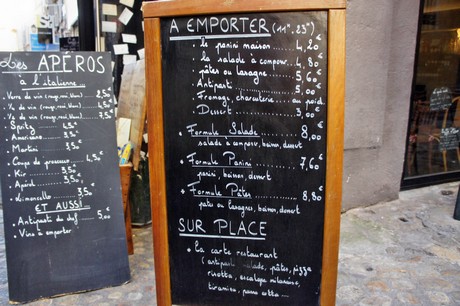 Les APÉROS
à l'italienne...
Verre de vin (rouge, rosé, blanc) 2,5€
1/4 de vin (rouge, rosé, blanc) 4,5€
1/2 de vin 7,5€
Spritz 4,5€
Americano 3,5€
Martini 3,5€
Coupe de prosecco 4,5€
Kir 3,5€
Apérol 3,5€
Limoncello 3,5€
ET AUSSI :
Antipasti du chef 5,00
Vins à emporter
A EMPORTER (11€, 23€)
le panini maison 4,20€
la salade à composer 4,80€
pâtes ou lasagne 5,60€
Antipasti 5,00€
Fromage, charcuterie au poids
Dessert 3,00€
Formule Salade 8,00€
salade à composer, boisson, dessert
Formule Panini 7,60€
panini, boisson, dessert
Formule Pâtes 8,80€
pâte ou lasagnes, boisson, dessert
SUR PLACE
la carte restaurant
(antipasti, salade, pâtes, pizza
risotto, escalope milanaise,
tiramisu, panna cotta...